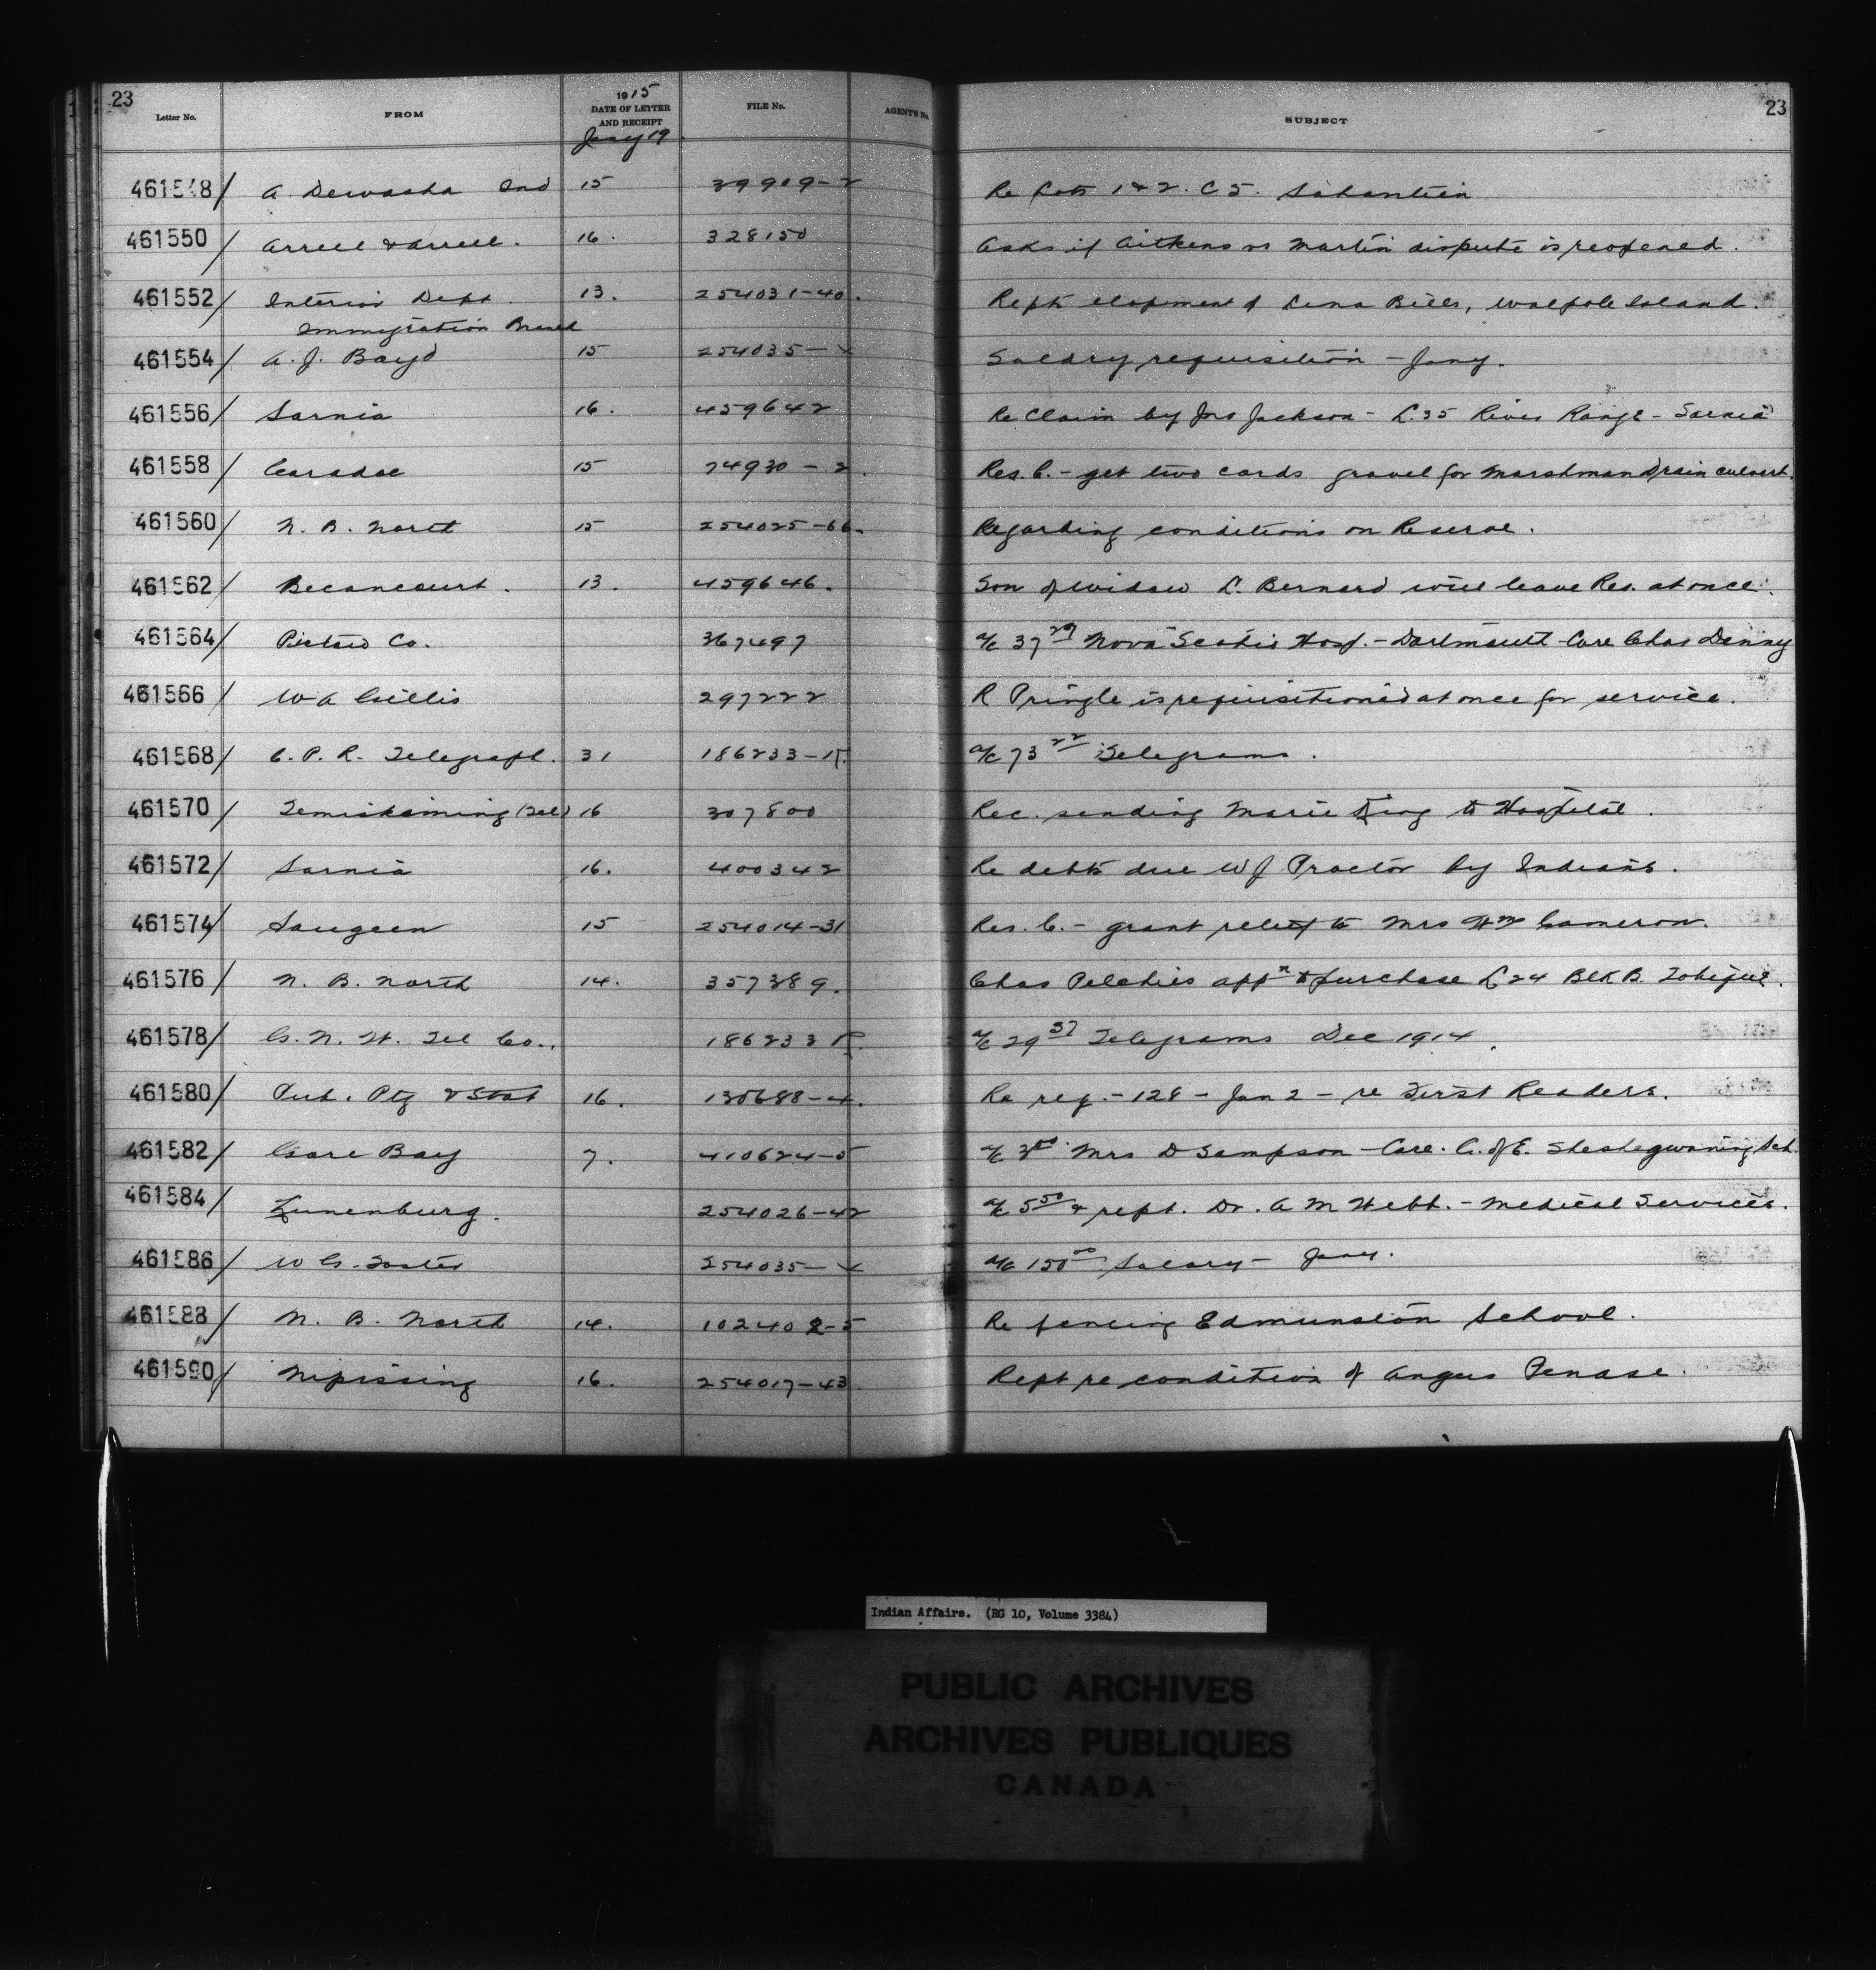 23
23
Letter No. FROM 1915 DATE OF LETTER AND RECEIPT FILE No. AGENT'S No. SUBJECT
Jany 19
461548/ A. Dewasha Ind 15 39909-2 Re Lots 1 & 2. C 5.
461550/ Arrell & Arrell. 16. 328150 Asks if Aitkens vs Martin dispute is reopened.
461552/ Interior Dept. 13. 254031-40. Repts elopement of Lena Bills, Walpole Island.
Immigration Branch
461554/ A. J. Boyd 15 254035-X Salary requisition - Jany.
461556/ Sarnia 16. 459642 Re Claim by Jno Jackson - L.35 River Range - Sarnia
461558/ Caradoc 15 74930-2. Res. C. - get two cords gravel for Marshman Drain culvert.
461560/ N. B. North 15 254025-66. Regarding conditions on Reserve.
461562/ Becancourt. 13. 459646. Son of widow L. Bernard will leave Res. at once.
461564/ Pictou Co. 367497 a/c 37 29 Nova Scotia Hosp. - Dartmouth Care Chas Denny
461566/ W A Gillis 297222 R Pringle is requisitioned at once for service.
461568/ C. P. R. Telegraph. 31 186233-R. a/c 73 22 Telegrams.
461570/ Temiskaming (Tel) 16 307800 Rec. sending Marie King to Hospital.
461572/ Sarnia 16. 400342 Re debts due W J Proctor by Indians.
461574/ Saugeen 15 254014-31 Res. C. - grant relief to Mrs Wm Cameron.
461576/ N. B. North 14. 357389. Chas appn to purchase L 24 Blk B. Tobique.
461578/ G. N. W. Tel Co. 186233 R. a/c 29 37 Telegrams Dec 1914.
461580/ Pub. Ptg & Stat 16. 130688-4. Re req. - 128 - Jan 2 - re First Readers.
461582/ Gore Bay 7. 410624-5 a/c 3 00 Mrs D Sampson - Care. C. of E. Sheshegwaning Sch.
461584/ Lunenburg. 254026-42 a/c 5 50 & rept. Dr. A M Hebb. - Medical Services.
461586/ W G. Foster 254035-X a/c 150 00 Salary - Jany.
461588/ N. B. North 14. 102402-5 Re fencing Edmunston School.
461590/ Nipissing 16. 254017-43. Rept re condition of Angus Penase.
Indian Affairs. (RG 10, Volume 3384)
PUBLIC ARCHIVES
ARCHIVES PUBLIQUES
CANADA